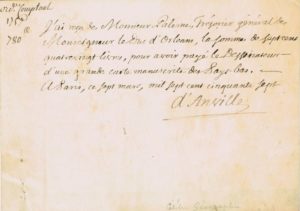 ord. comptant
780
J'ai reçu de Monsieur Palerne, Trésorier général de
Monseigneur le Duc d'Orleans, la somme de sept cens
quatre vingt livres, pour avoir payé le Dessinateur
d'une grande carte manuscrite des Pays-bas.
A Paris, ce sept mars, mil sept cent cinquante sept
d'Anville